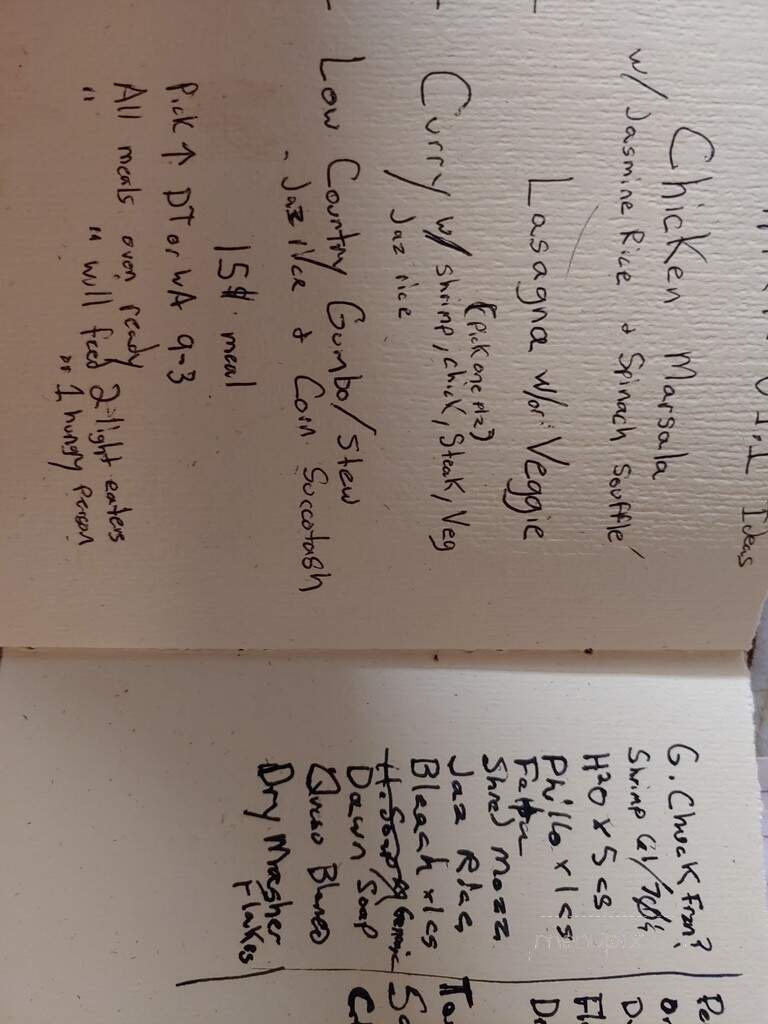 Ideas
Chicken Marsala
w/ Jasmine Rice & Spinach Souffle
Lasagna w/or: Veggie
(pick one plz)
- Curry w/ shrimp, chick, Steak, Veg
Jaz rice
- Low Country Gumbo/Stew
- Jaz rice & Corn Succotash
15$ meal
Pick ↑ DT or WA 9-3
All meals oven ready
" " will feed 2-light eaters
or 1 hungry person
G. Chuck Fran?
Shrimp
H2O x 5 cs
Phillo x 1 cs
Fetta
Shred Mozz
Jaz Rice
Bleach x 1 cs
H. Soap
Dawn Soap
Queso Blanco
Dry Masher
Flakes